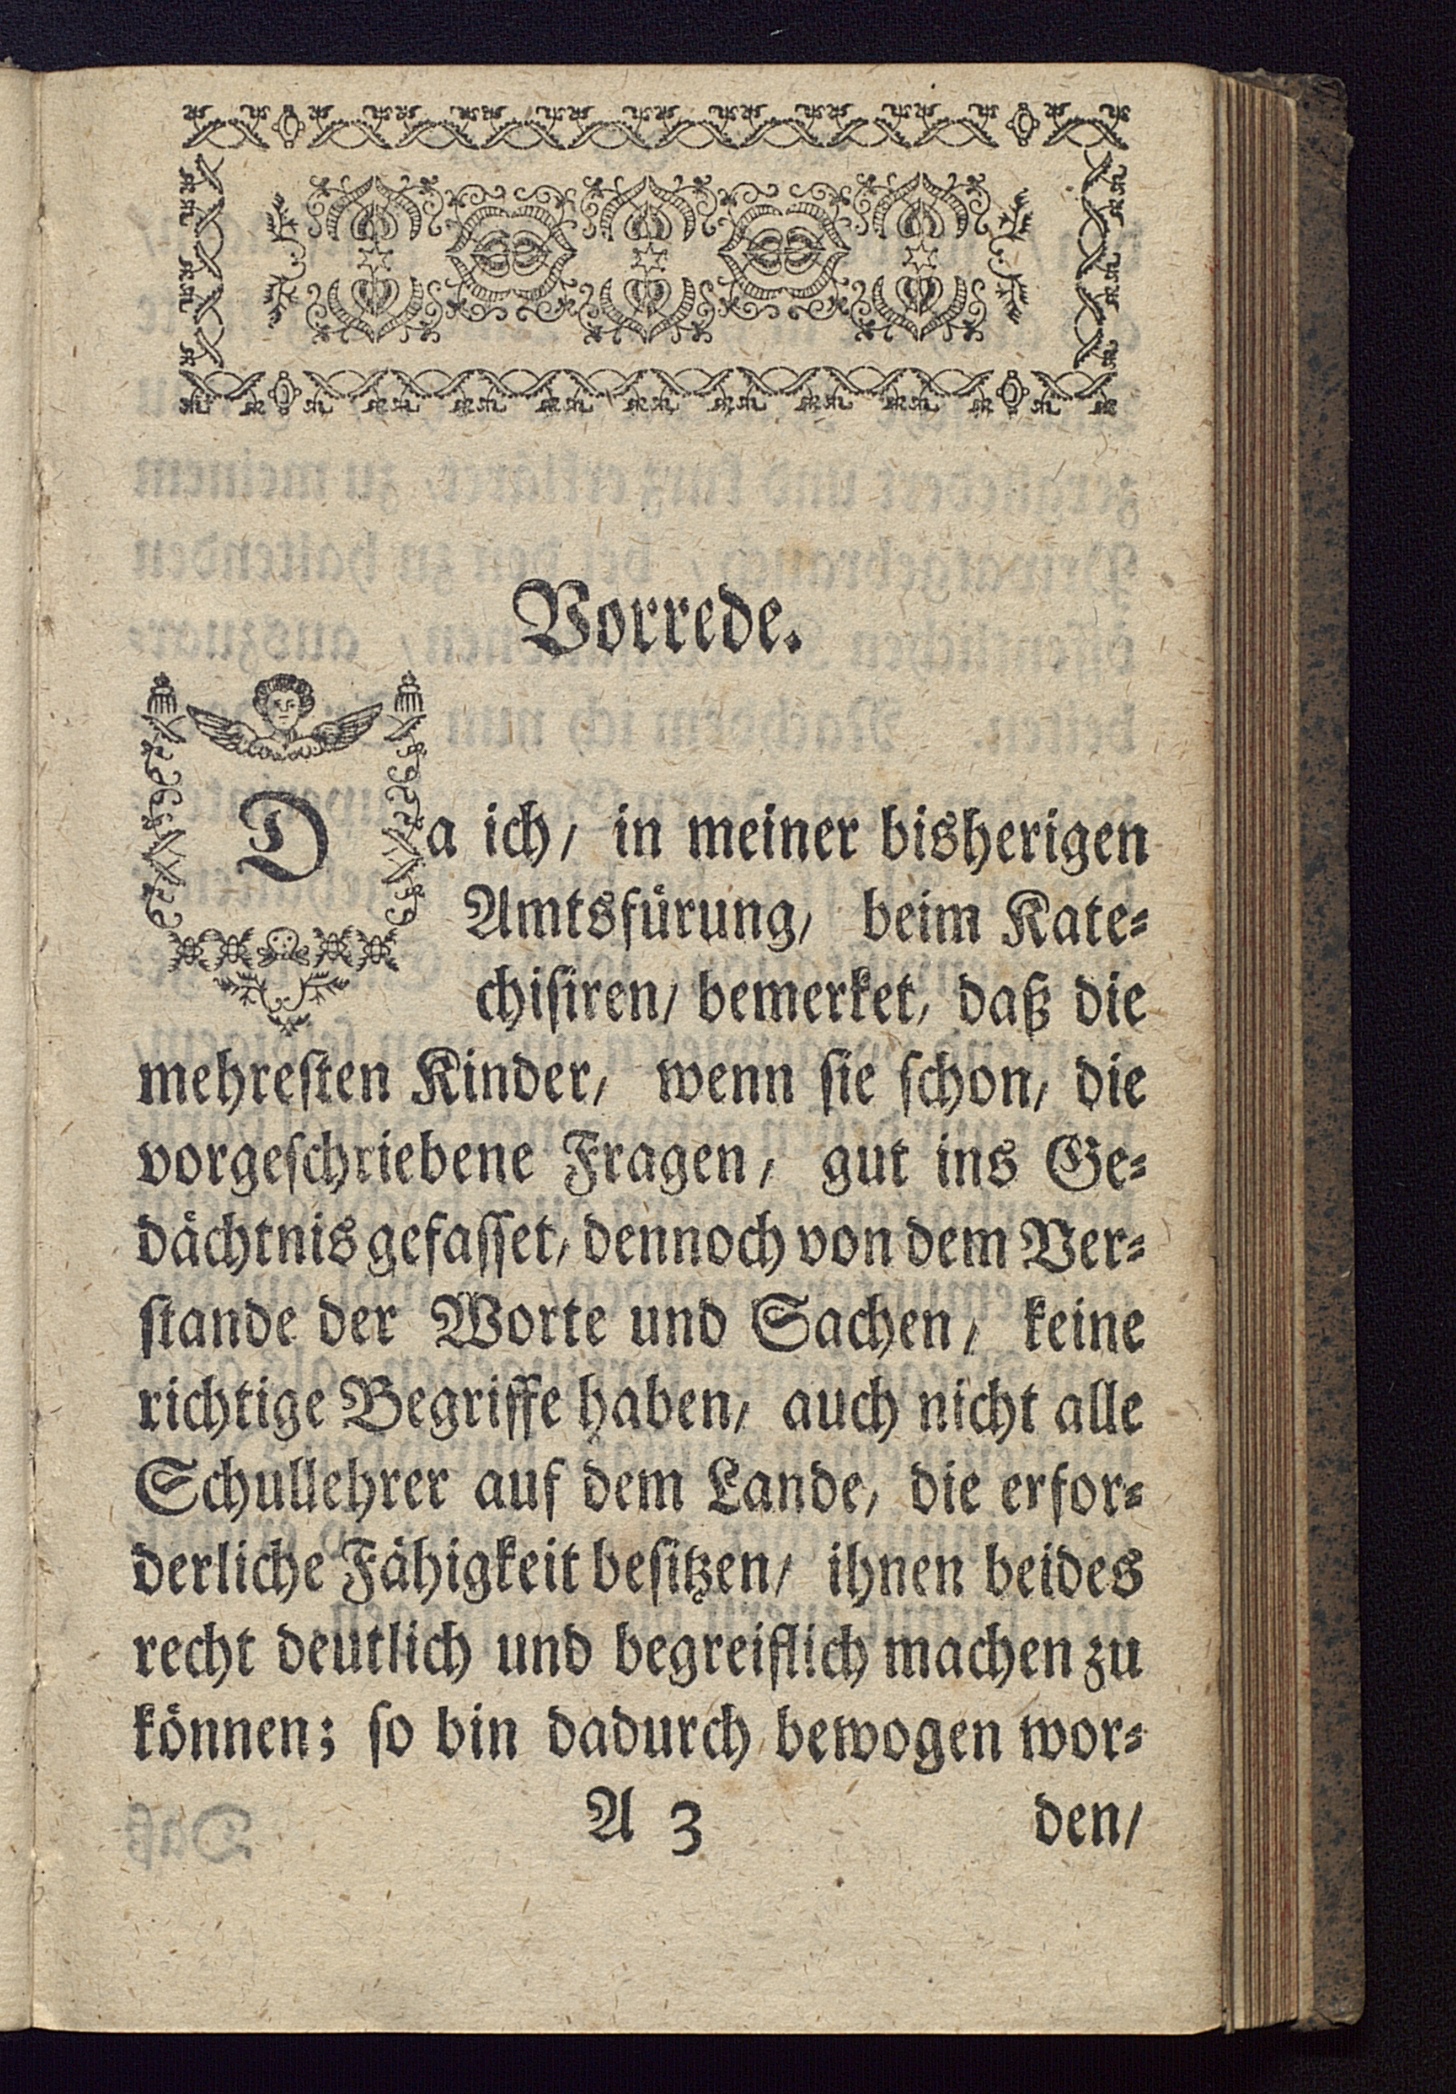 Vorrede.
Da ich/ in meiner bisherigen
Amtsfürung/ beim Kate⸗
chisiren/ bemerket/ daß die
mehresten Kinder/ wenn sie schon/ die
vorgeschriebene Fragen/ gut ins Ge⸗
dächtnis gefasset/ dennoch von dem Ver⸗
stande der Worte und Sachen/ keine
richtige Begriffe haben/ auch nicht alle
Schullehrer auf dem Lande/ die erfor⸗
derliche Fähigkeit besitzen/ ihnen beides
recht deutlich und begreiflich machen zu
können; so bin dadurch bewogen wor⸗
A 3 den/